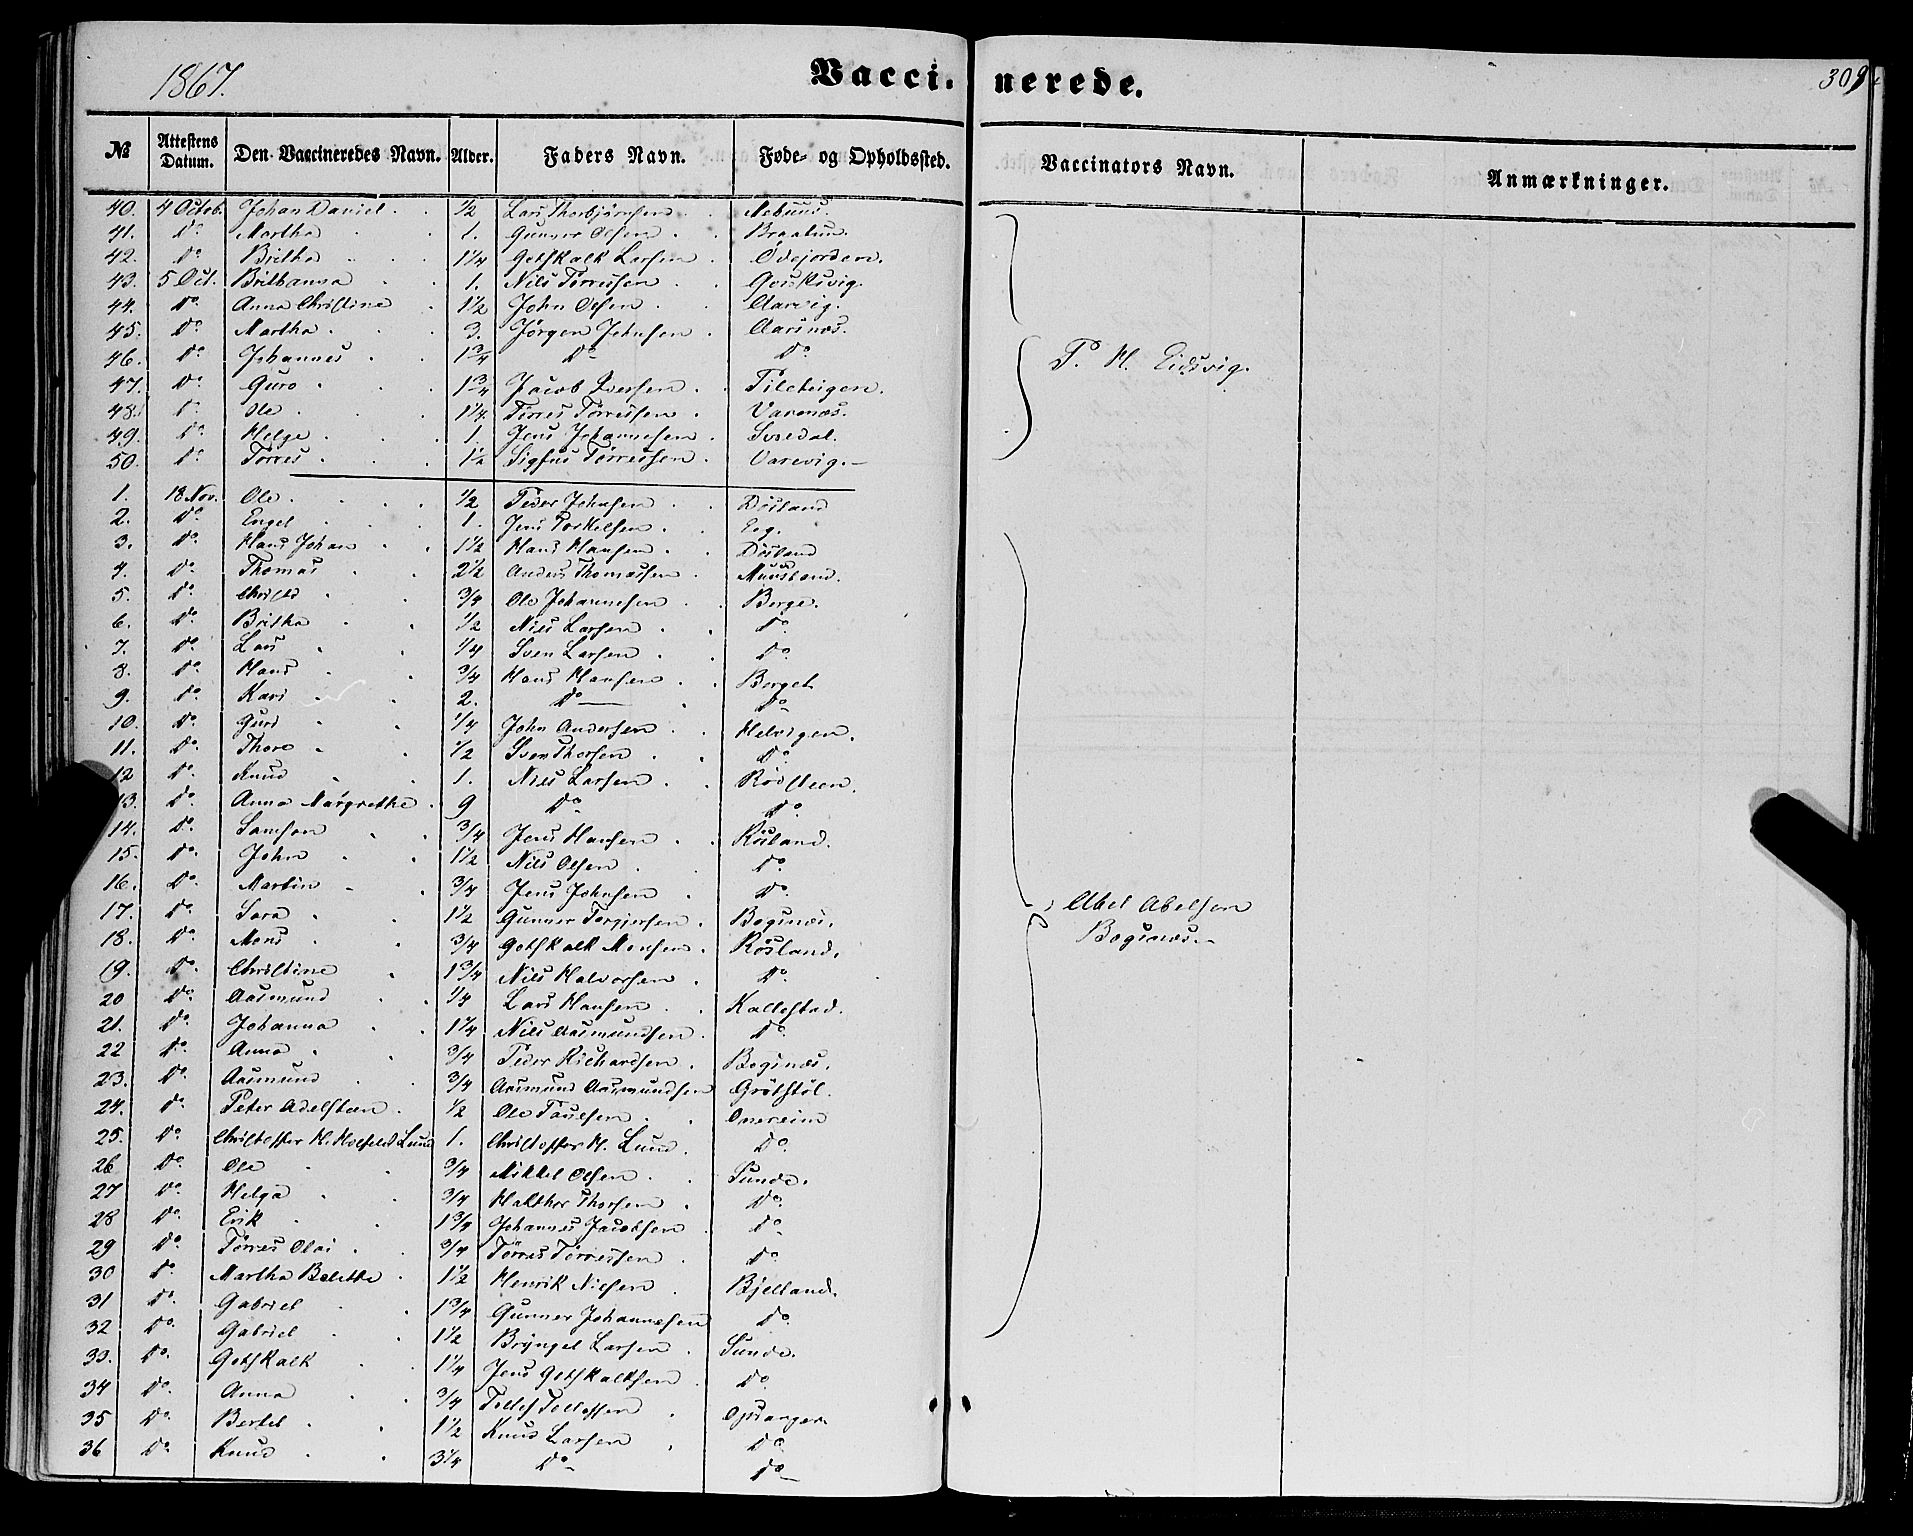 1867.
Vacci- nerede.
309
№ Attestens Datum. Den Vaccineredes Navn. Alder. Faders Navn. Føde- og Opholdssted. Vaccinators Navn. Anmærkninger.
40. 4 Octob. Johan Daniel 1/2 Lars Thorbjørnsen
41. Do Martha 1. Gunner Olsen
42. Do Britha 1 1/4 Gotskalk Larsen Ødejorden.
43. 5 Oct. Brithanna 1. Nils Tørressen
44. Do Anna Christine 1 1/2 John Olsen Aarvig.
45. Do Martha 3. Jørgen Johnsen Aarsnæs.
46. Do Johannes 1 3/4 Do Do
47. Do Guro 1 3/4 Jacob Iversen
48. Do Ole 1 1/4 Tørres Tørressen Varenæs.
49. Do Helge 1. Jens Johannesen
50. Do Tørres 1 1/2 Sigfus Tørressen Varevig.
P. H. Eidsvig.
1. 18 Nov. Ole 1/2 Peder Johnsen
2. Do Engel 1. Jens Torkelsen Eeg.
3. Do Hans Johan 1 1/2 Hans Hansen
4. Do Thomas 2 1/2 Anders Thomassen
5. Do 3/4 Ole Johannesen Berge.
6. Do Britha 1/2 Nils Larsen Do
7. Do Lars 1/4 Sven Larsen Do
8. Do Hans 3/4 Hans Hansen Berget
9. Do Kari 2. Do Do
10. Do Guri 1/4 John Andersen Helvigen.
11. Do Thore 1/2 Sven Thorsen Do
12 Do Knud 1. Nils Larsen Rødsteen.
13. Do Anna Margrethe 9 Do Do
14. Do Samson 3/4 Jens Hansen Røsland.
15. Do John 1 1/2 Nils Olsen Do
16. Do Martin 3/4 Jens Johnsen Do
17. Do Sara 1 1/2 Gunner Torgjersen Bogsnæs.
Abel Abelsen
Bogsnæs.
18. Do Mons 3/4 Gotskalk Monsen Røsland.
19. Do Christine 1 3/4 Nils Halvorsen Do
20 Do Aasmund 1/4 Lars Hansen Kallestad.
21. Do Johanna 1 1/4 Nils Aasmundsen Do
22 Do Anna 3/4 Peder Richardsen Bogsnæs.
23. Do Aasmund 3/4 Aasmund Aasmundsen
24. Do Peter Adelsteen 1/2 Ole Paulsen Omreim
25. Do Christoffer H. Lund 1. Christoffer H. Lund Do
26 Do Ole 3/4 Mikkel Olsen Sunde.
27 Do Helga 3/4 Halthor Thorsen Do
28 Do Erik 1 3/4 Johannes Jacobsen Do
29 Do Tørres Olai 3/4 Tørres Tørressen Do
30 Do Martha Belethe 1 1/2 Henrik Nielsen Bjelland.
31 Do Gabriel 1 3/4 Gunner Johannesen Do
32 Do Gabriel 1 1/2 Bryngel Larsen Sunde.
33. Do Gotskalk 1 1/4 Jens Gotskalksen Do
34 Do Anna 3/4 Tollef Tollefsen Opsanger
35 Do Bertel 1 1/2 Knud Larsen Do
36 Do Knud 3 1/4 Do Do